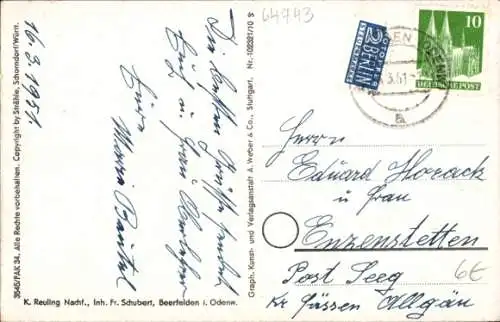 64943
16.3.1951.
Die besten Grüße sendet
Euch u. Frau
Eure
Maria
3545/FAK 34. Alle Rechte vorbehalten. Copyright by Strähle, Schorndorf/Württ.
K. Reuling Nachf., Inh. Fr. Schubert, Beerfelden i. Odenw.
Graph. Kunst- und Verlagsanstalt A. Weber & Co., Stuttgart. Nr. 102321/10 S
NOTOPFER
2 BERLIN
STEUERMARKE
10
DEUTSCHE POST
3.51
a
Herrn
Eduard Horack
u Frau
Enzenstetten
Post Seeg
Kr Füssen Allgäu
6€